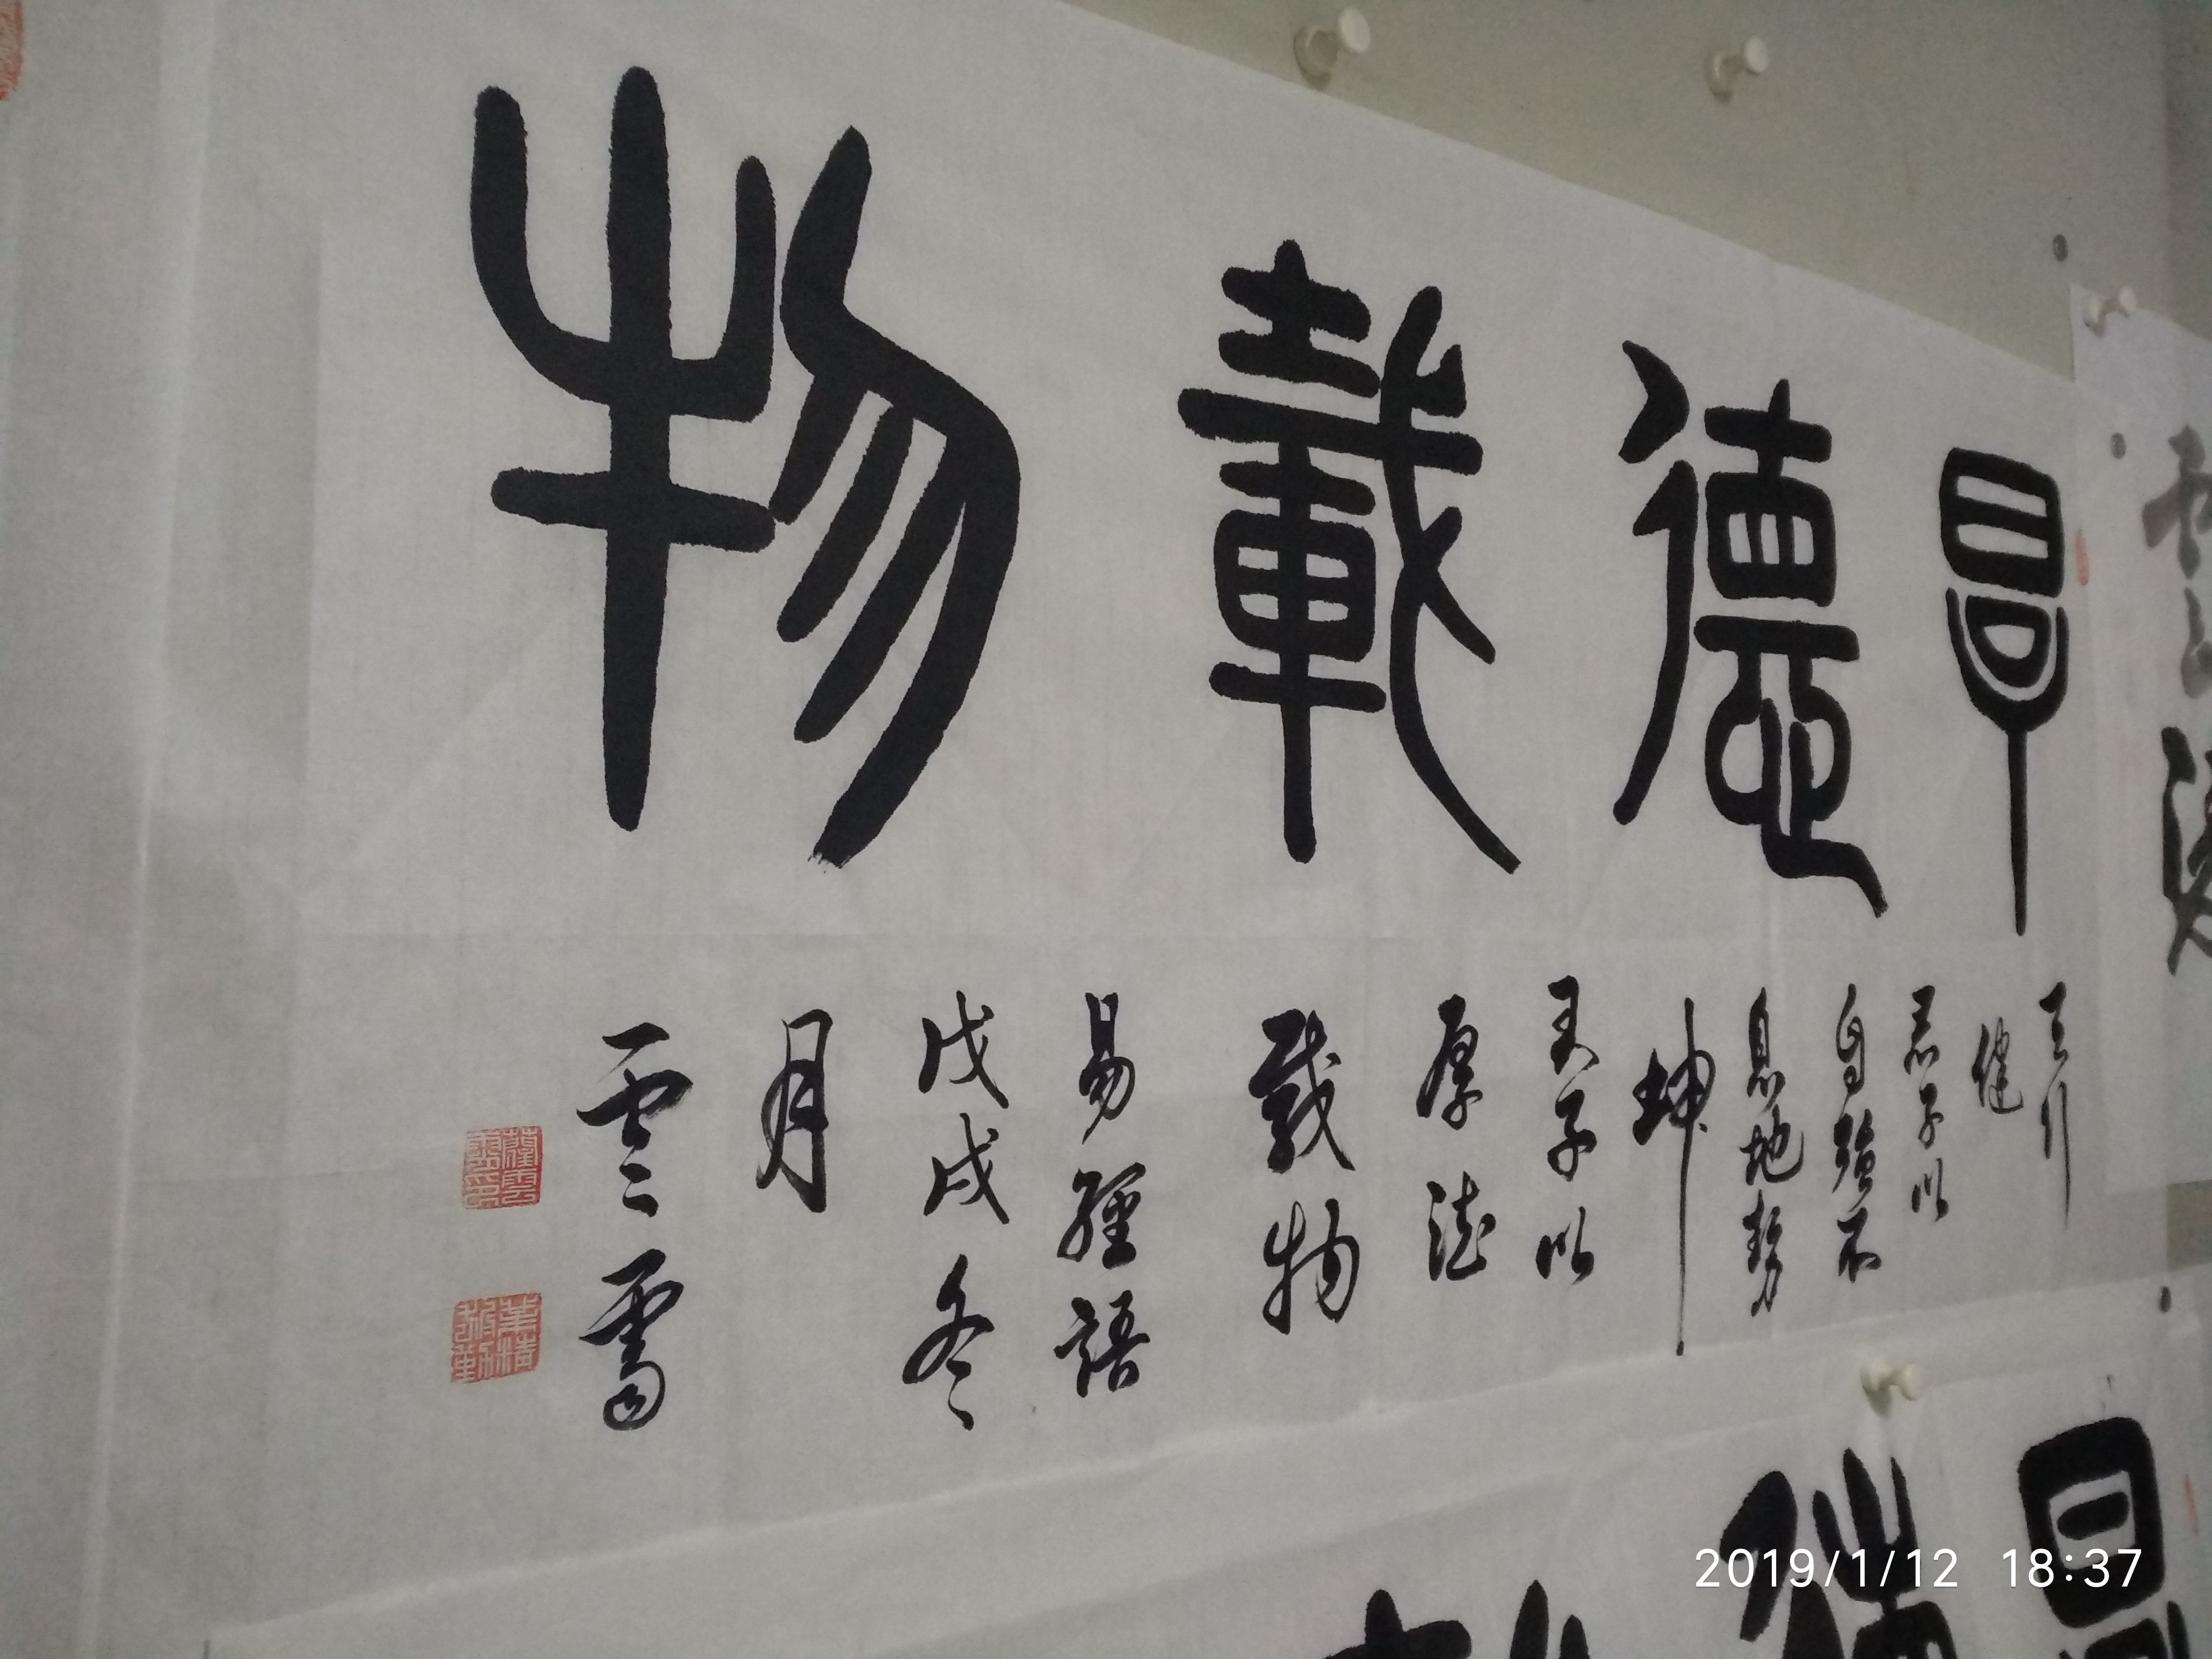 厚德載物
天行
健
君子以
自強不
息地勢
坤
君子以
厚德
載物
易經語
戊戌冬
月
雲雷
業精
於勤
2019/1/12 18:37